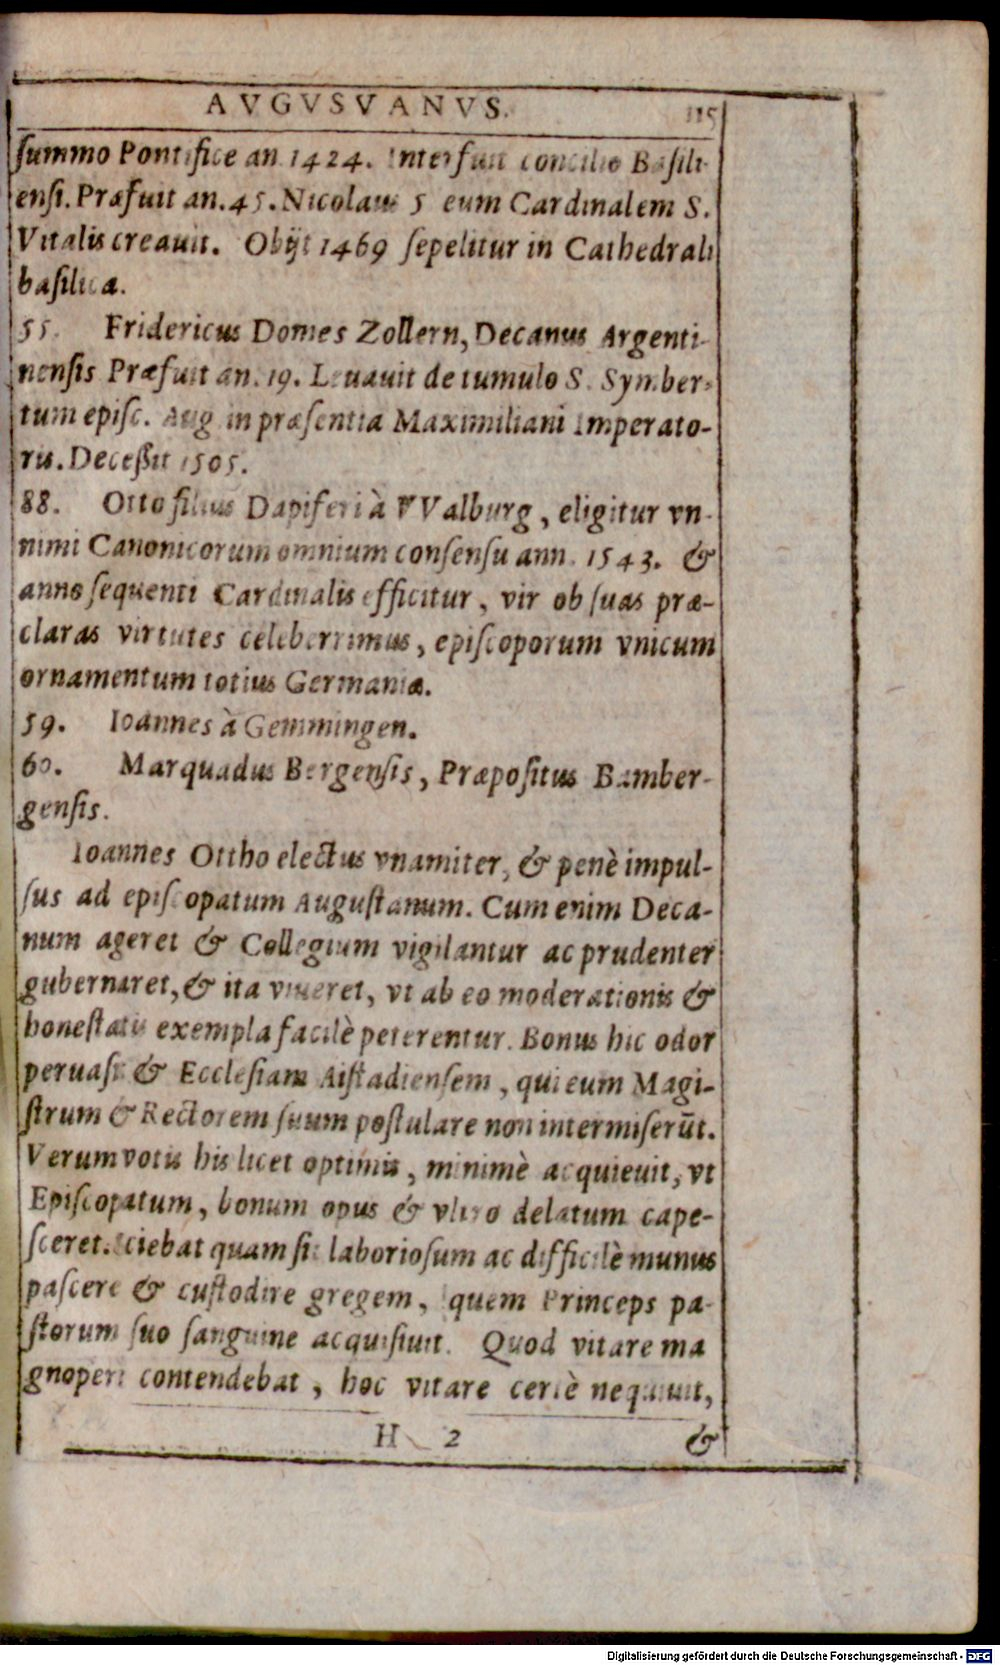 AVGVSVANVS. 115
ſummo Pontifice an 1424. Interfuit concilio Baſili-
enſi. Præfuit an. 45. Nicolaus 5 eum Cardinalem S.
Vitalis creauit. Obijt 1469 ſepelitur in Cathedrali
baſilica.
55. Fridericus Domes Zollern, Decanus Argenti-
nenſis Præfuit an. 19. Leuauit de tumulo S. Symber-
tum epiſc. Aug in præſentia Maximiliani Imperato-
ris. Deceßit 1505.
88. Otto filius Dapiferi à VValburg, eligitur vn-
nimi Canonicorum omnium conſenſu ann. 1543. &
anno ſequenti Cardinalis efficitur, vir ob ſuas præ-
claras virtutes celeberrimus, epiſcoporum vnicum
ornamentum totius Germaniæ.
59. Ioannes à Gemmingen.
60. Marquadus Bergenſis, Præpoſitus Bamber-
genſis.
Ioannes Ottho electus vnamiter, & penè impul-
ſus ad epiſcopatum Auguſtanum. Cum enim Deca-
num ageret & Collegium vigilantur ac prudenter
gubernaret, & ita viueret, vt ab eo moderationis &
honeſtatis exempla facilè peterentur. Bonus hic odor
peruaſit & Eccleſiam Aiſtadienſem, qui eum Magi-
ſtrum & Rectorem ſuum poſtulare non intermiſerūt.
Verum votis his licet optimis, minimè acquieuit, vt
Epiſcopatum, bonum opus & vltro delatum cape-
ſceret. Sciebat quam ſit laborioſum ac difficilè munus
paſcere & cuſtodire gregem, quem Princeps pa-
ſtorum ſuo ſanguine acquiſiuit. Quod vitare ma
gnoperè contendebat, hoc vitare certè nequiuit,
H 2 &
Digitalisierung gefördert durch die Deutsche Forschungsgemeinschaft - DFG